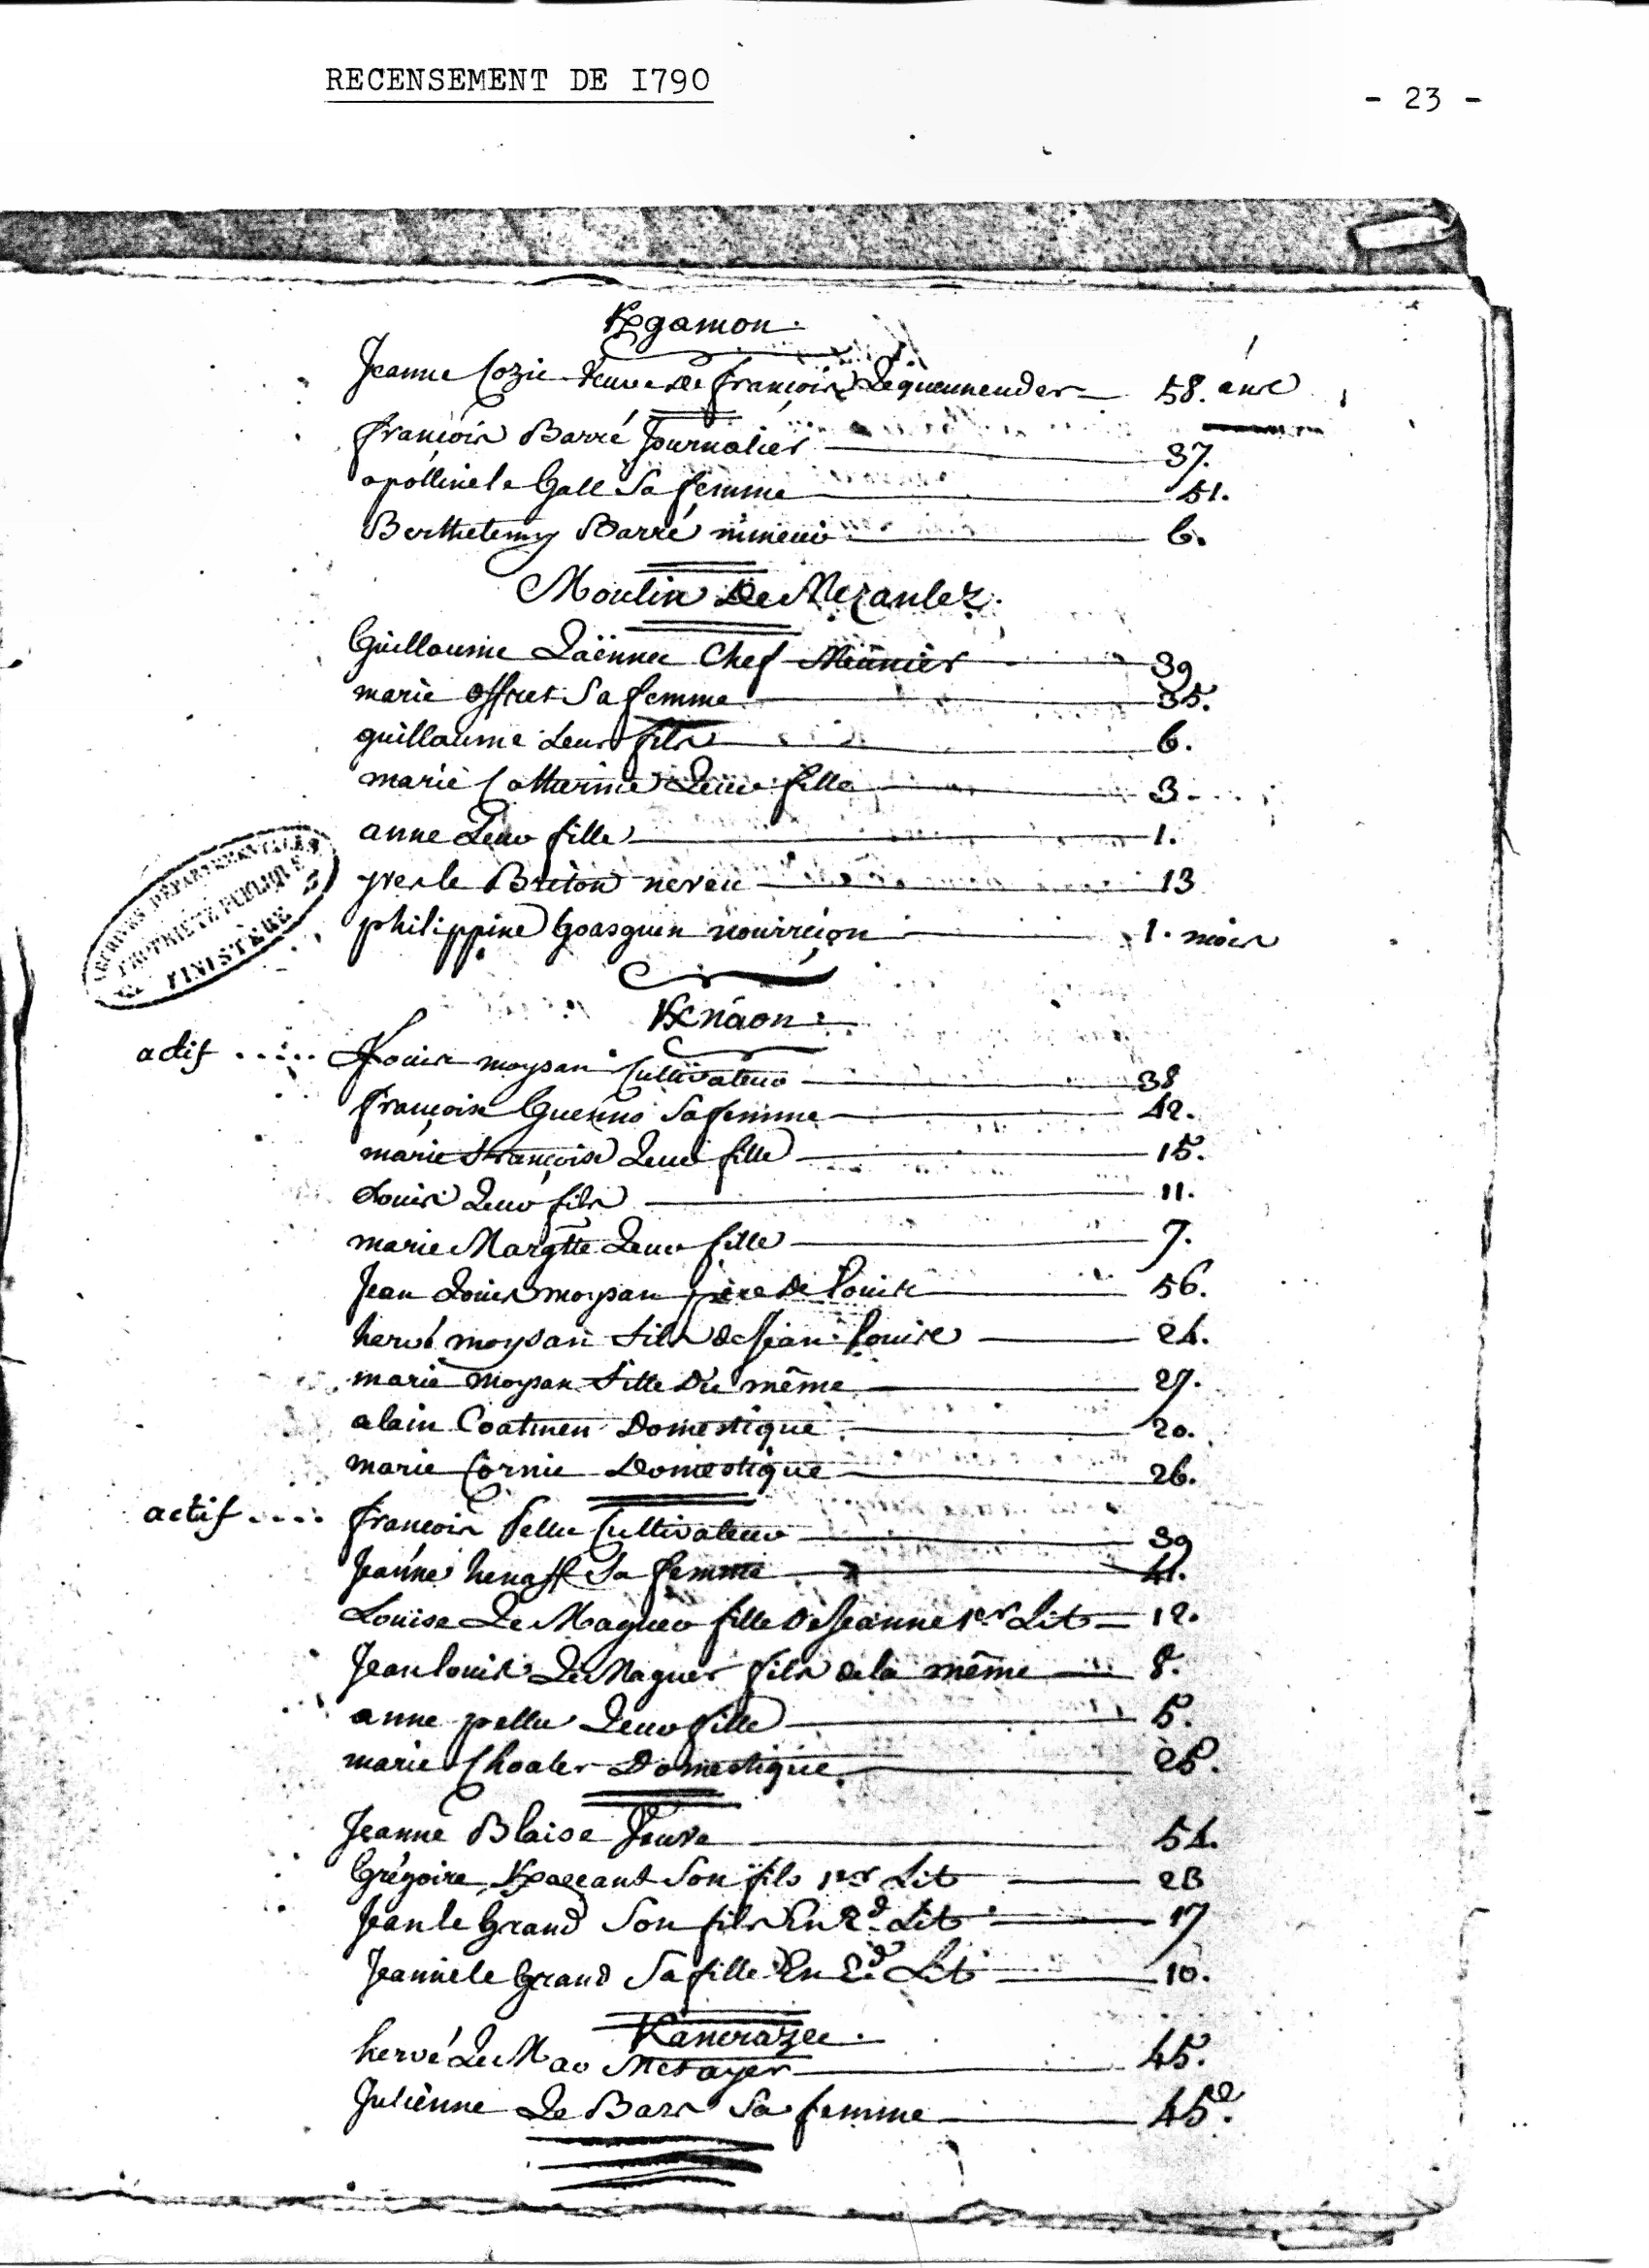 RECENSEMENT DE I790
- 23 -
K/gamon.
Jeanne Cozic veuve de françois Lequeunender 58. ans
françois Barré Journalier 37.
apolline le Gall Sa femme 51.
Berthelemy Barré mineur 6.
Moulin De Mezanlez.
Guillaume Laënnec Chef Meunier 39
marie offret Sa femme 35.
guillaume Leur fils 6.
marie Catherine Leur fille 3
anne Leur fille 1.
yves le Breton neveu 13
philippine Goasguen nourriçon 1. mois
ARCHIVES DÉPARTEMENTALES
PROPRIÉTÉ PUBLIQUE
FINISTÈRE
K/náon
actif ..... Louis moysan Cultivateur 38
françoise Guenno Sa femme 42.
marie françoise Leur fille 15.
Louis Leur fils 11.
marie Margtte Leur fille 7.
Jean Louis moysan père de Louis 56.
hervé moysan fils de Jean Louis 24.
marie moysan fille Du même 27.
alain Coatmen Domestique 20.
marie Cornic Domestique 26.
actif .... françois Pellu Cultivateur 39
Jeanne henaff Sa femme 41.
Louise Le Maguer fille De Jeanne 1er Lit 12.
Jean louis Le Maguer fils de la même 8.
anne pellu Leur fille 5.
marie Choaler Domestique 25.
Jeanne Blaise Veuve 54.
Grégoire Son fils 1er Lit 23
Jean le Grand Son fils En 2d Lit 17
Jeanne le Grand Sa fille En 2d Lit 10.
hervé Le Mao Metayer 45.
Julienne Le Bars Sa femme 45.